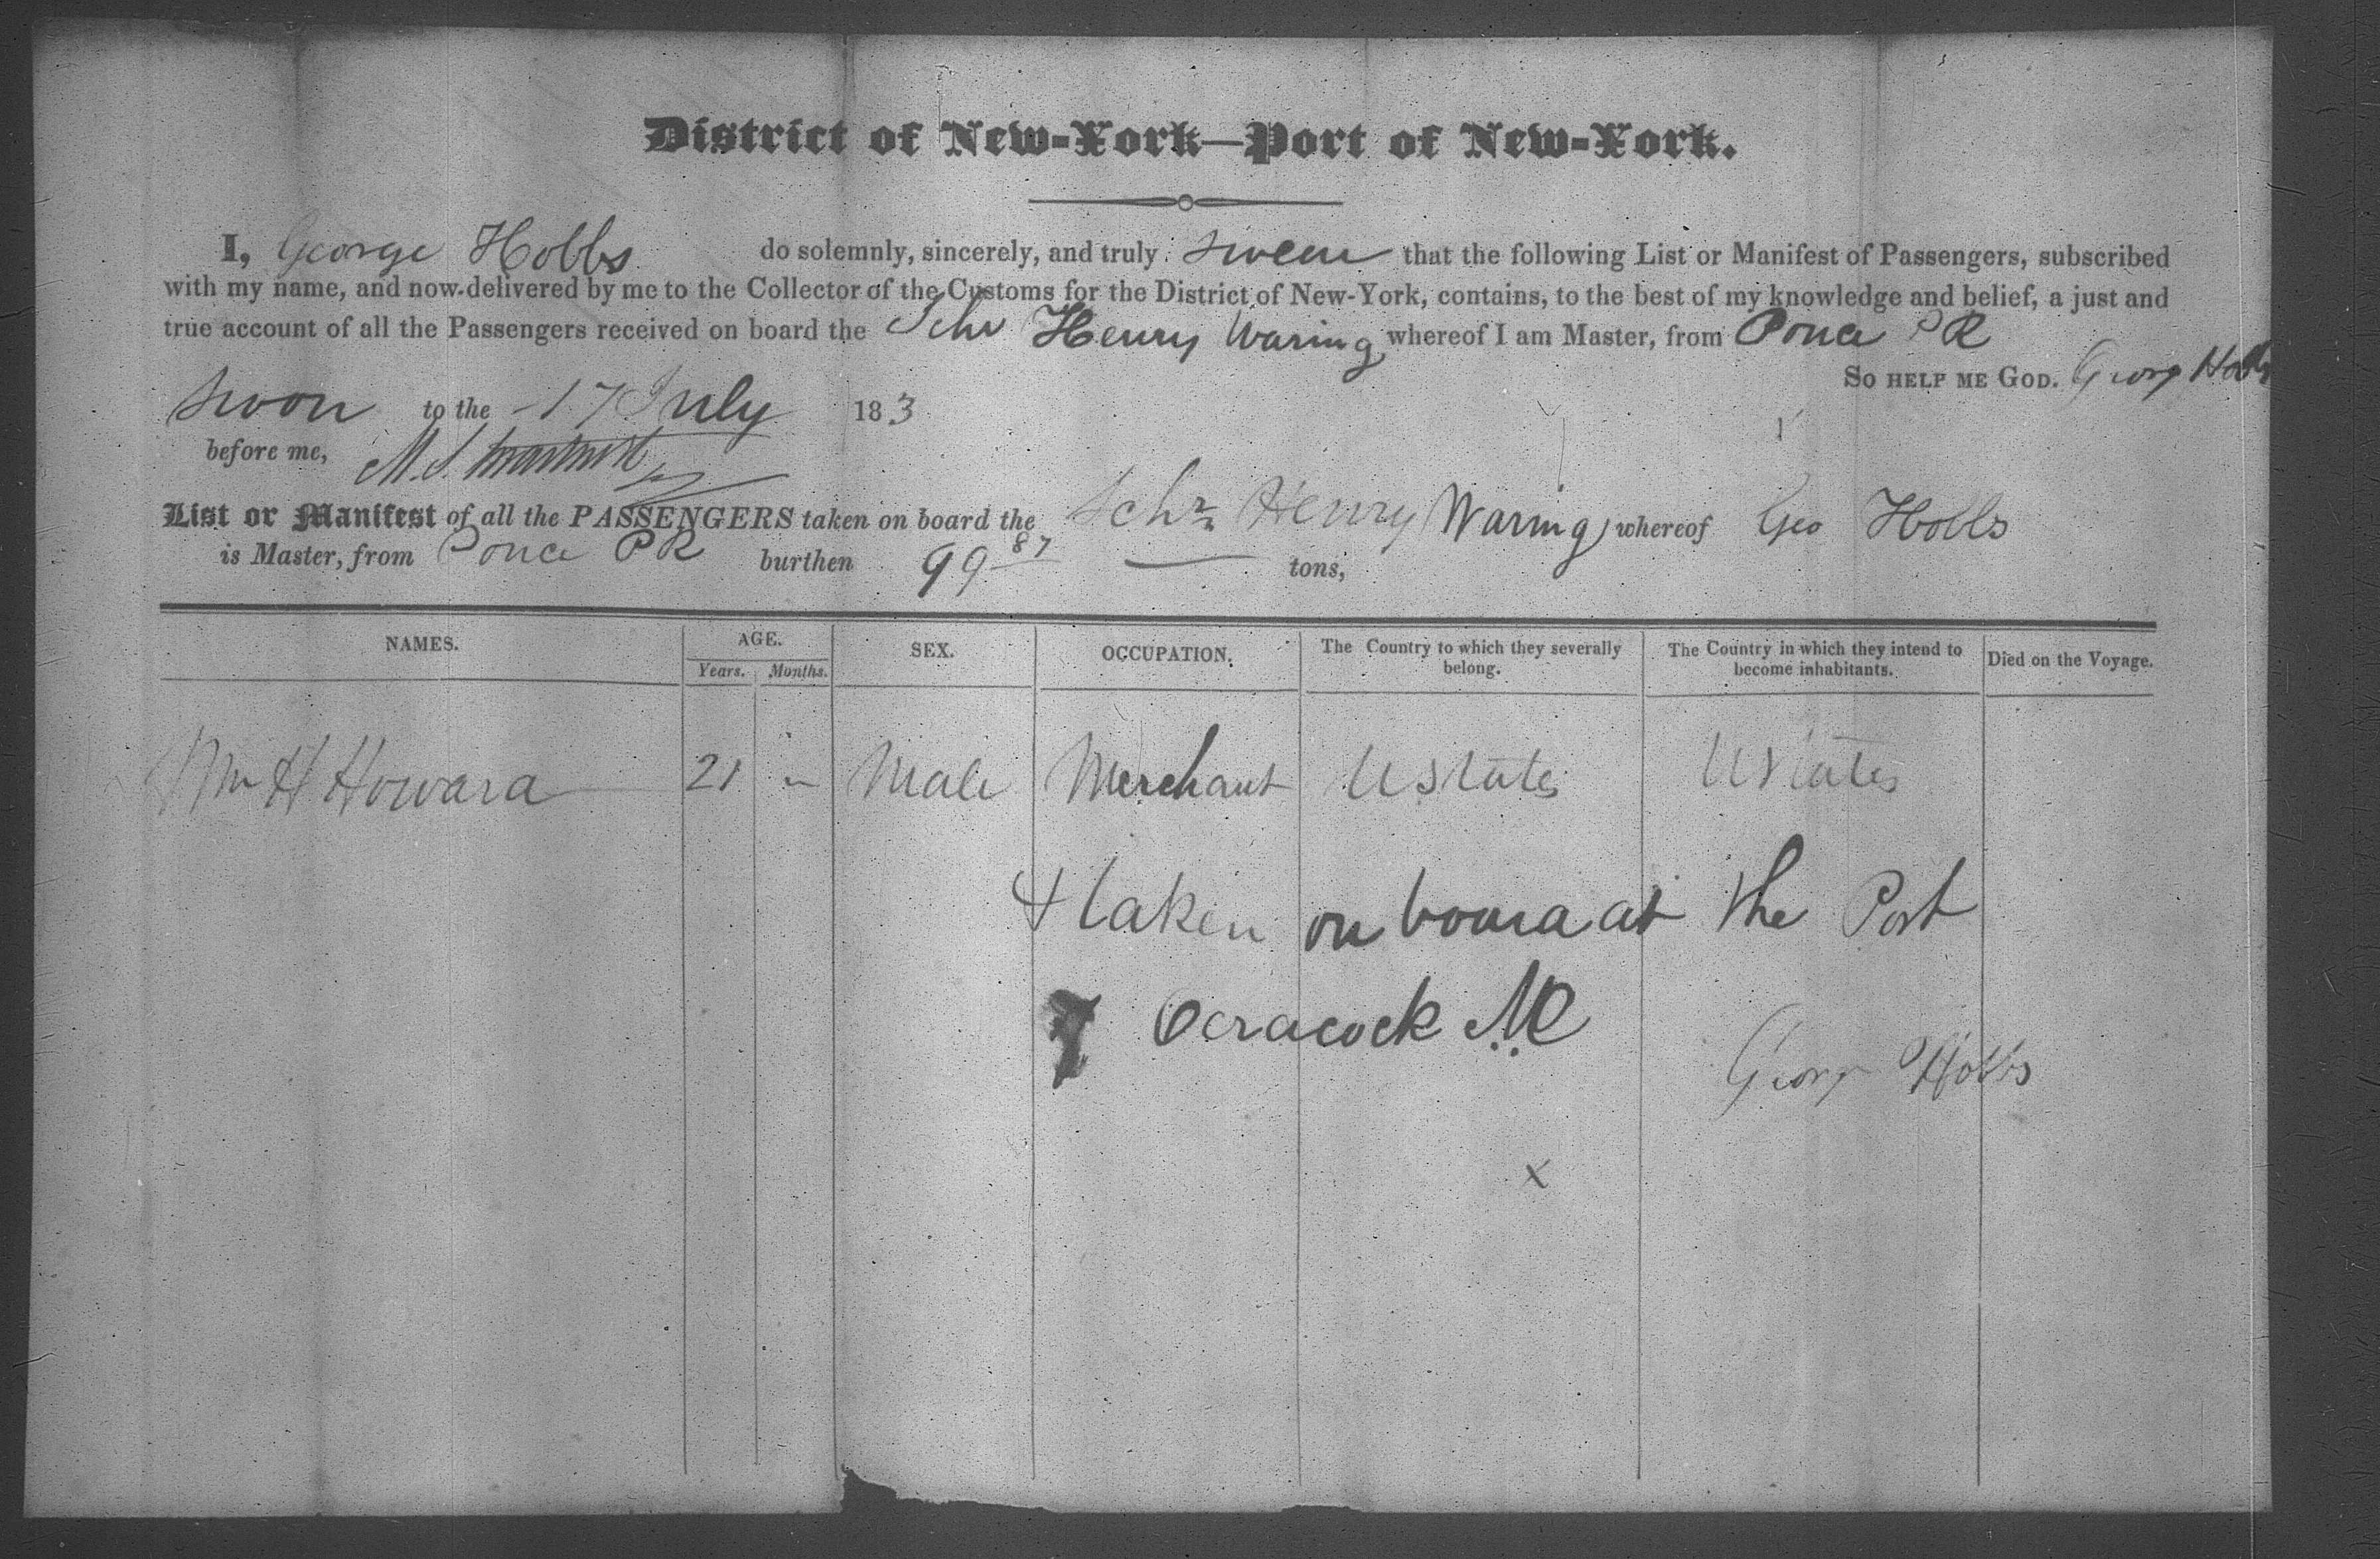 District of New-York—Port of New-York.
I, George Hobbs do solemnly, sincerely, and truly swear that the following List or Manifest of Passengers, subscribed
with my name, and now delivered by me to the Collector of the Customs for the District of New-York, contains, to the best of my knowledge and belief, a just and
true account of all the Passengers received on board the Schr Henry Waring whereof I am Master, from Ponce PR
SO HELP ME GOD. George Hobbs
Swon to the 17 July 183
before me,
List or Manifest of all the PASSENGERS taken on board the Schr Henry Waring whereof Geo Hobbs
is Master, from Ponce PR burthen 99 87 tons,
NAMES. AGE. SEX. OCCUPATION. The Country to which they severally belong. The Country in which they intend to become inhabitants. Died on the Voyage.
Years. Months.
Wm H Howard 21 " Male Merchant U States U States
+ taken on board at the Port
Ocracock NC
George Hobbs
x